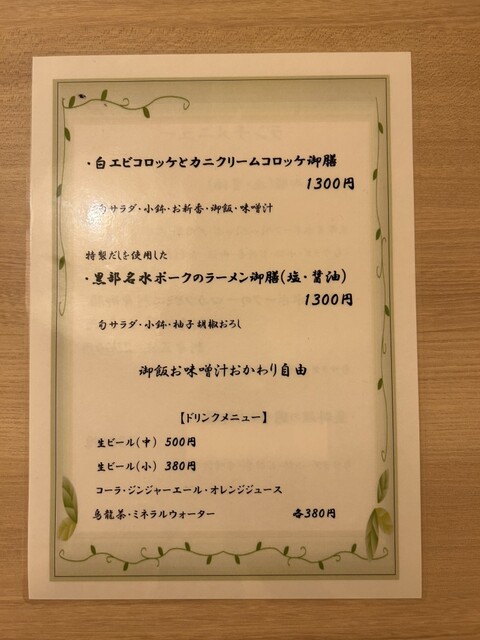 ・白エビコロッケとカニクリームコロッケ御膳
1300円
旬サラダ・小鉢・お新香・御飯・味噌汁
特製だしを使用した
・黒部名水ポークのラーメン御膳(塩・醤油)
1300円
旬サラダ・小鉢・柚子胡椒おろし
御飯お味噌汁おかわり自由
【ドリンクメニュー】
生ビール(中) 500円
生ビール(小) 380円
コーラ・ジンジャーエール・オレンジジュース
烏龍茶・ミネラルウォーター 各380円